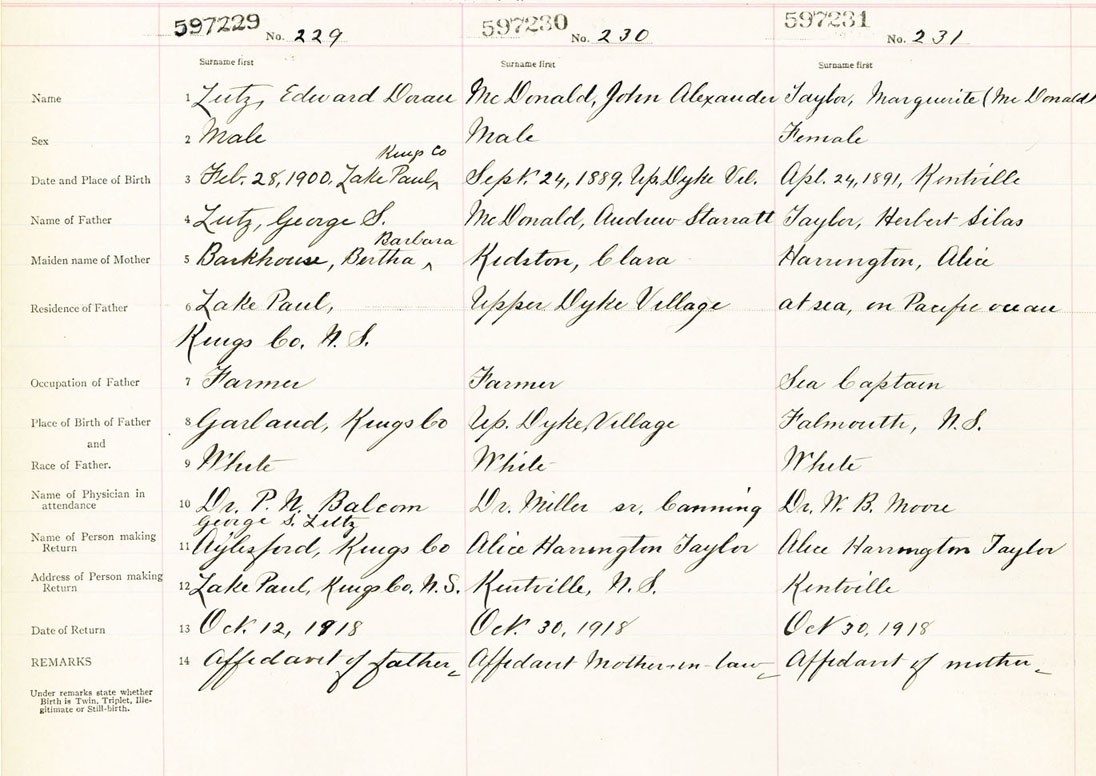 597229 No. 229 597230 No. 230 597231 No. 231
Surname first Surname first Surname first
Name 1 Lutz, Edward Doran McDonald, John Alexander Taylor, Marguerite (McDonald)
Sex 2 Male Male Female
Kings Co
Date and Place of Birth 3 Feb. 28, 1900, Lake Paul, Sept. 24, 1889, Up. Dyke Vil. Apl. 24, 1891, Kentville
Name of Father 4 Lutz, George S. McDonald, Andrew Starratt Taylor, Herbert Silas
Barbara
Maiden name of Mother 5 Barkhouse, Bertha ^ Kidston, Clara Harrington, Alice
Residence of Father 6 Lake Paul, Upper Dyke Village at sea, on Pacific ocean
Kings Co. N.S.
Occupation of Father 7 Farmer Farmer Sea Captain
Place of Birth of Father 8 Garland, Kings Co Up. Dyke, Village Falmouth, N.S.
and
Race of Father. 9 White White White
Name of Physician in attendance 10 Dr. P. N. Balcom Dr. Miller sr. Canning Dr. W. B. Moore
George S. Lutz
Name of Person making Return 11 Aylesford, Kings Co Alice Harrington Taylor Alice Harrington Taylor
Address of Person making Return 12 Lake Paul, Kings Co. N.S. Kentville, N.S. Kentville
Date of Return 13 Oct. 12, 1918 Oct. 30, 1918 Oct 30, 1918
REMARKS 14 Affidavit of father Affidavit Mother-in-law Affidavit of mother
Under remarks state whether
Birth is Twin, Triplet, Ille-
gitimate or Still-birth.